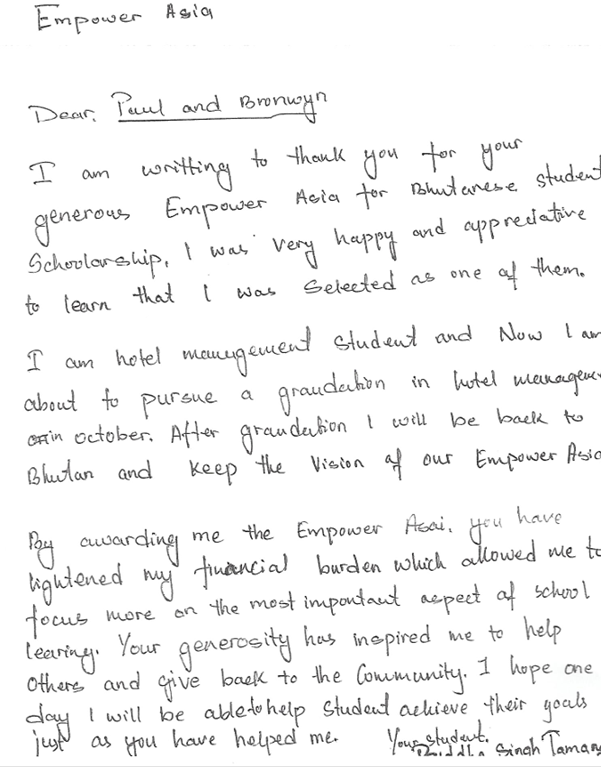 Empower Asia
Dear. Paul and Bronwyn
I am writting to thank you for your
generous Empower Asia for Bhutanese student
Schoolarship, I was very happy and appreciative
to learn that I was Selected as one of them.
I am hotel management student and Now I am
about to pursue a graudation in hotel manageme
in october. After graudation I will be back to
Bhutan and keep the Vision of our Empower Asia
By awarding me the Empower Asai. you have
lightened my financial burden which allowed me to
focus more on the most impontant aspect of school
learing. Your generosity has inspired me to help
Others and give back to the Community. I hope one
day I will be able to help Student achieve their goals
just as you have helped me. Your student.
Singh Tamang